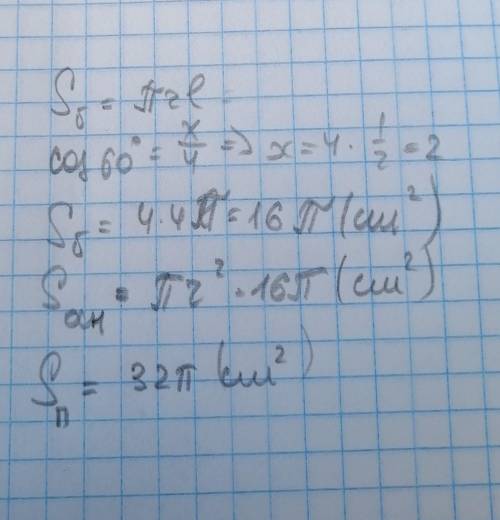 Sб = πrl =
cos 60° = x/4 => x = 4 · 1/2 = 2
Sб = 4·4π = 16π (см²)
Sосн = πr² = 16π (см²)
Sп = 32π (см²)